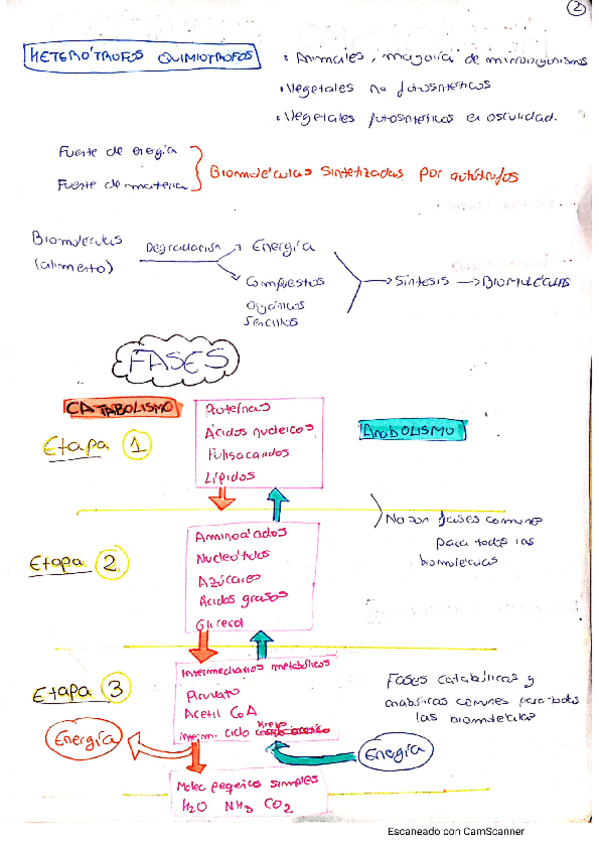 2
HETERÓTROFOS QUIMIOTROFOS
• Animales, mayoría de microorganismos
• Vegetales no fotosintéticos
• Vegetales fotosintéticos en oscuridad.
Fuente de energía
Fuente de materia
Biomoléculas sintetizadas por autótrofos
Biomoléculas
(alimento)
Degradación
Energía
Compuestos
orgánicos
sencillos
Síntesis
Biomoléculas
FASES
CATABOLISMO
ANABOLISMO
Etapa 1
Proteínas
Ácidos nucleicos
Polisacáridos
Lípidos
No son fases comunes
para todas las
biomoléculas
Etapa 2
Aminoácidos
Nucleótidos
Azúcares
Ácidos grasos
Glicerol
Etapa 3
Intermediarios metabólicos
Piruvato
Acetil CoA
Interm. Ciclo Krebs
Fases catabólicas y
anabólicas comunes para todas
las biomoléculas
Energía
Energía
Moléc pequeñas simples
H2O NH3 CO2
Escaneado con CamScanner